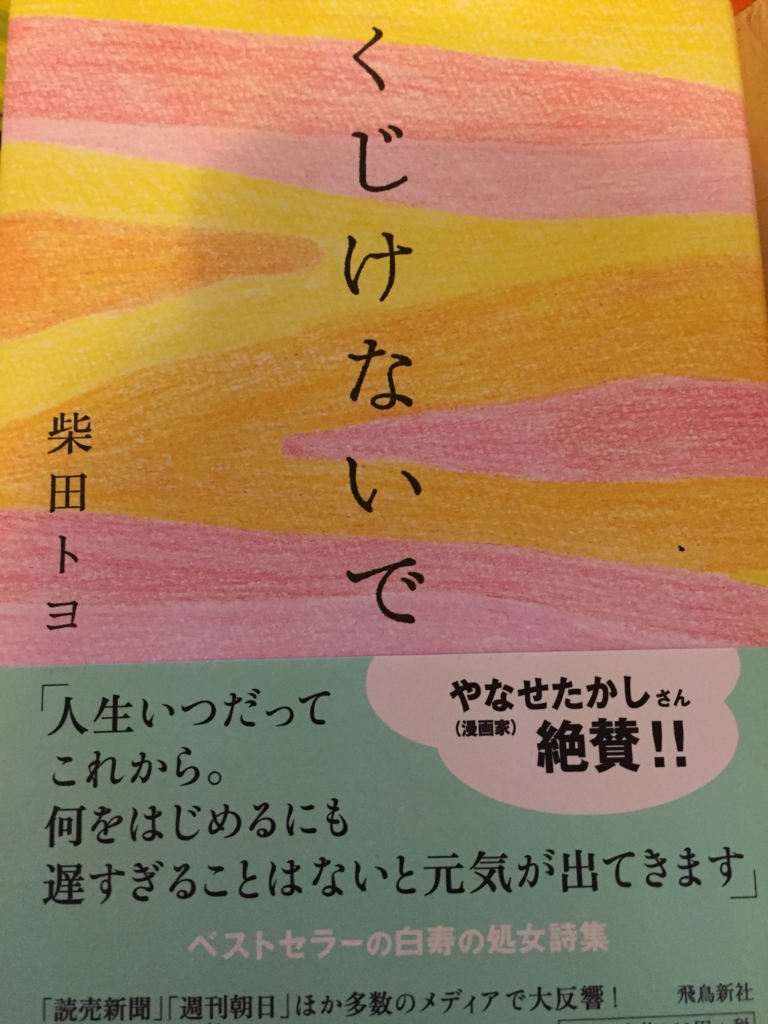 くじけないで
柴田トヨ
「人生いつだって
これから。
何をはじめるにも
遅すぎることはないと元気が出てきます」
やなせたかしさん
(漫画家)
絶賛!!
ベストセラーの白寿の処女詩集
「読売新聞」「週刊朝日」ほか多数のメディアで大反響!
飛鳥新社